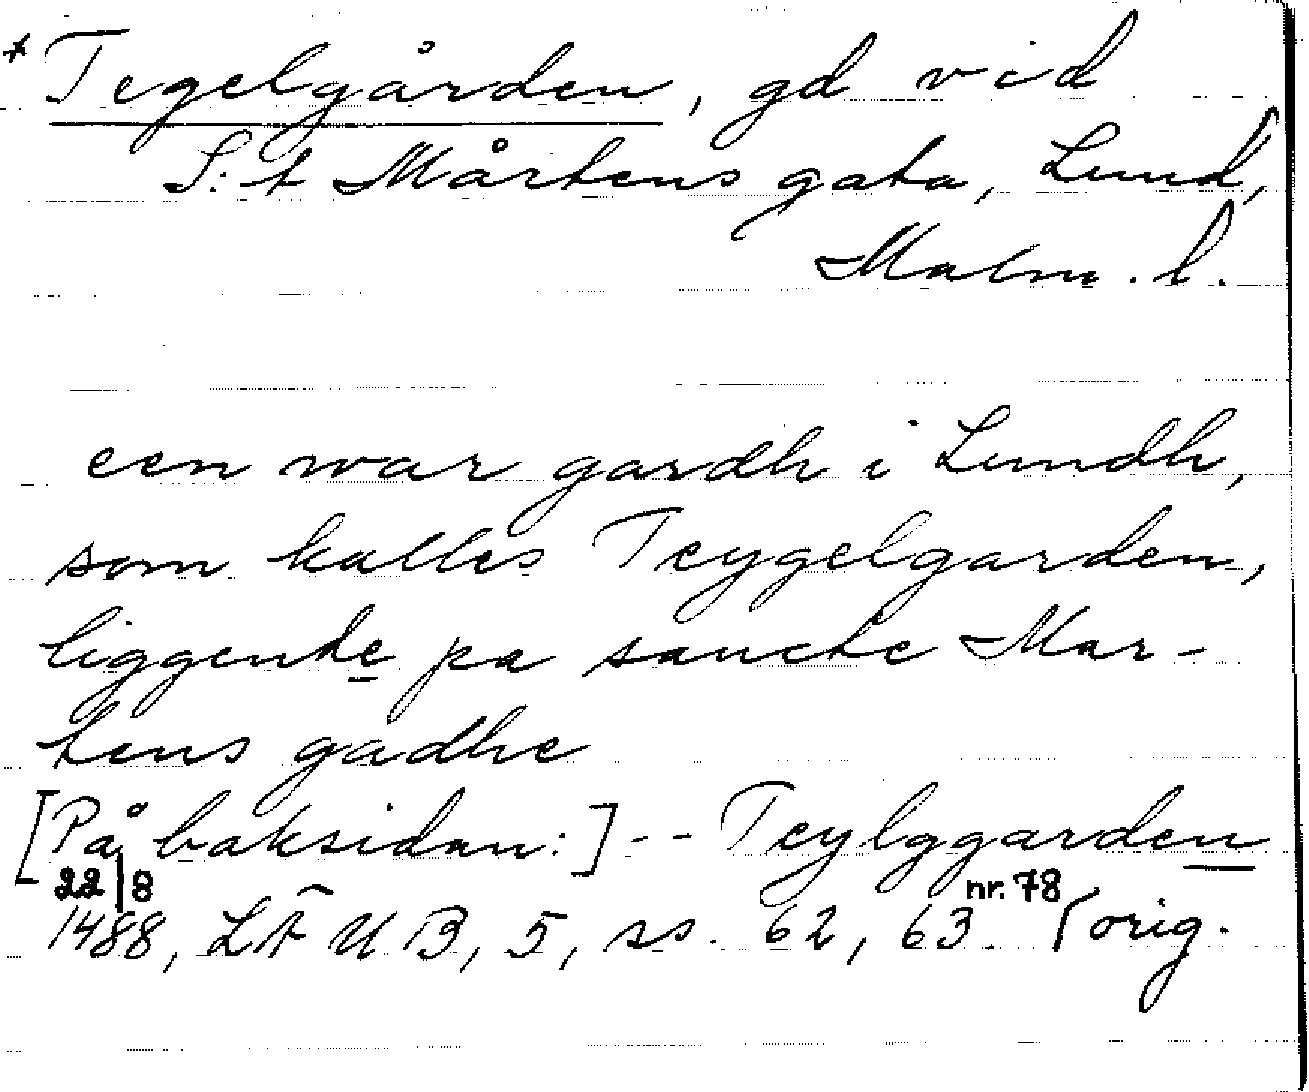 * Tegelgården, gd vid
S:t Mårtens gata, Lund,
Malm. l.
een war gardh i Lundh,
som kalles Teygelgarden,
liggende pa sancte Mar-
tens gadhe
[På baksidan:] -- Teylggarden
22/8 nr. 78
1488, LÄUB, 5, ss. 62, 63. (orig.